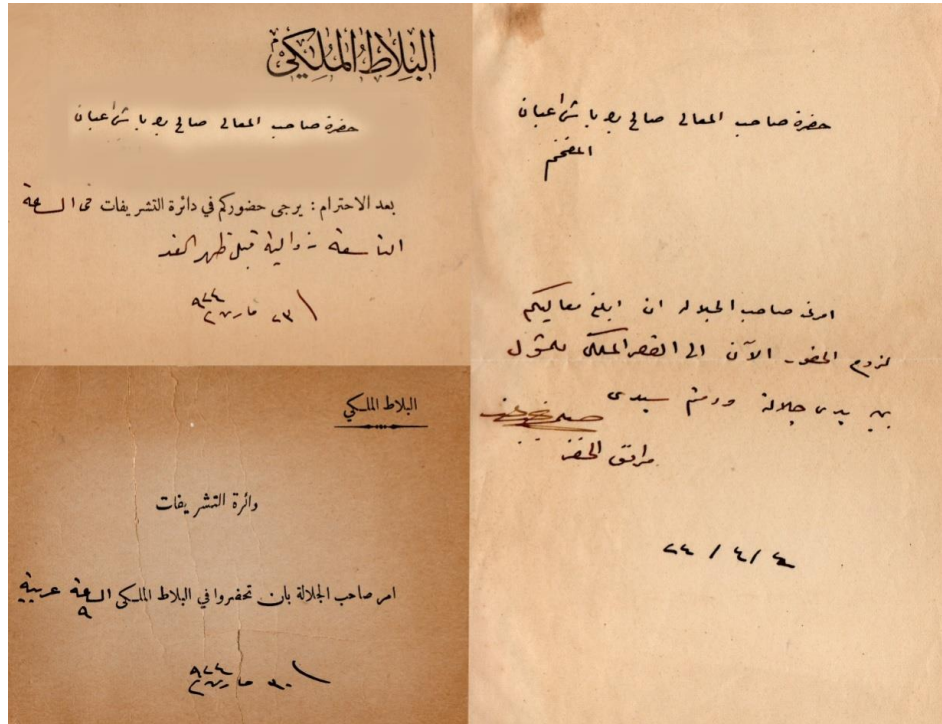 البلاط الملكي
حضرة صاحب المعالي صالح باشا اعيان
بعد الاحترام : يرجى حضوركم في دائرة التشريفات في الساعة
التاسعة زوالية قبل ظهر الغد
٢٣ مارس ٩٢٤
البلاط الملكي
دائرة التشريفات
امر صاحب الجلالة بان تحضروا في البلاط الملكي الساعة عربية
٩
٣٠ مارس ٩٢٤
حضرة صاحب المعالي صالح باشا اعيان
المفخم
امرني صاحب الجلالة ان ابلغ معاليكم
لزوم الحضور الآن الى القصر الملكي للمثول
بين يدي جلالة ودمتم سيدي
مرافق الخفر
٢٤ / ٤ / ٤